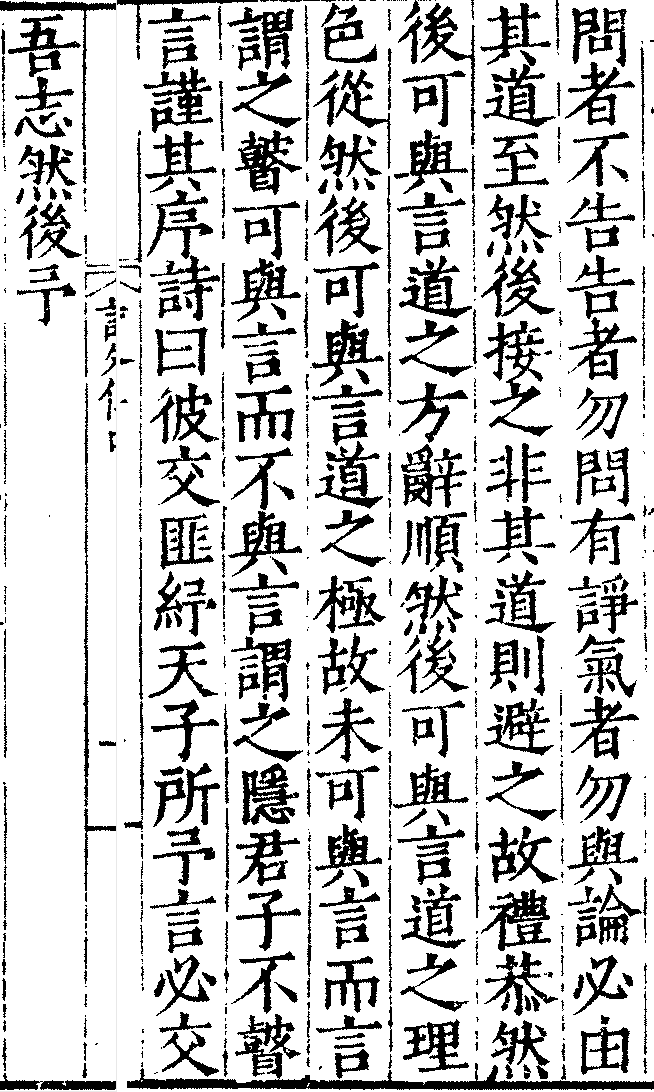 問者不告告者勿問有諍氣者勿與論必由
其道至然後接之非其道則避之故禮恭然
後可與言道之方辭順然後可與言道之理
色從然後可與言道之極故未可與言而言
謂之瞽可與言而不與言謂之隱君子不瞽
言謹其序詩曰彼交匪紓天子所予言必交
吾志然後予